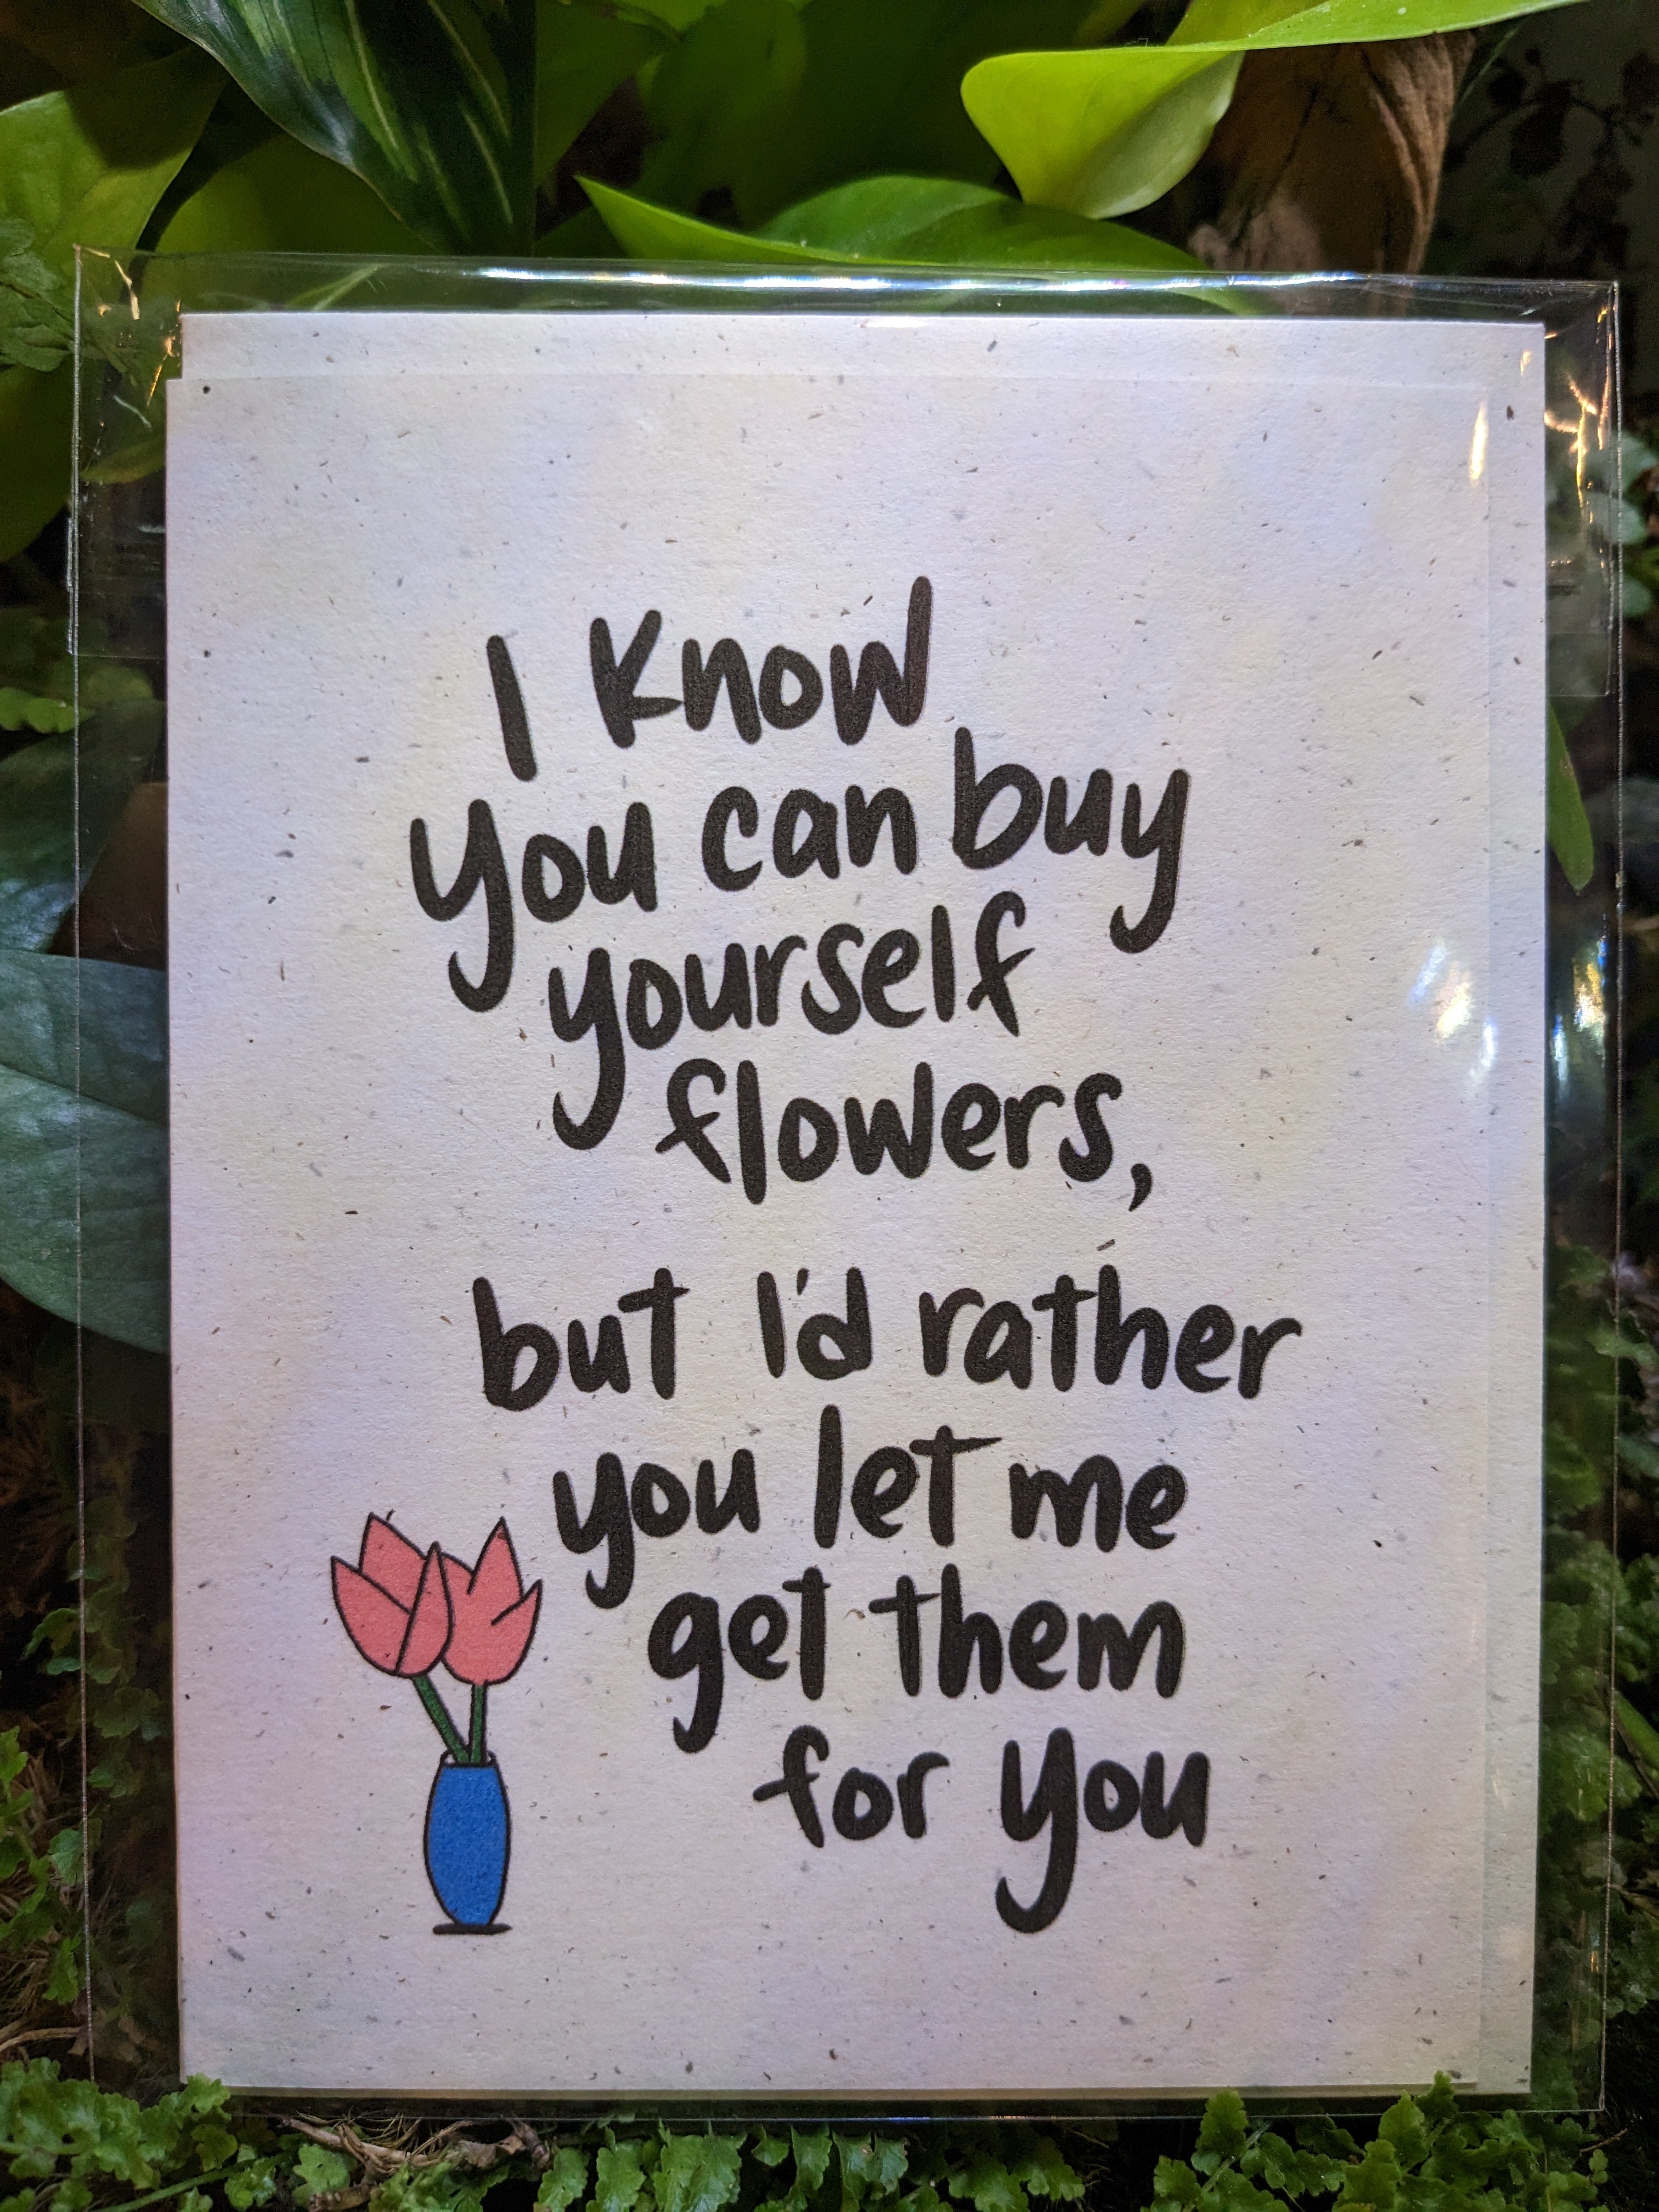 I know
you can buy
yourself
flowers,
but I'd rather
you let me
get them
for you